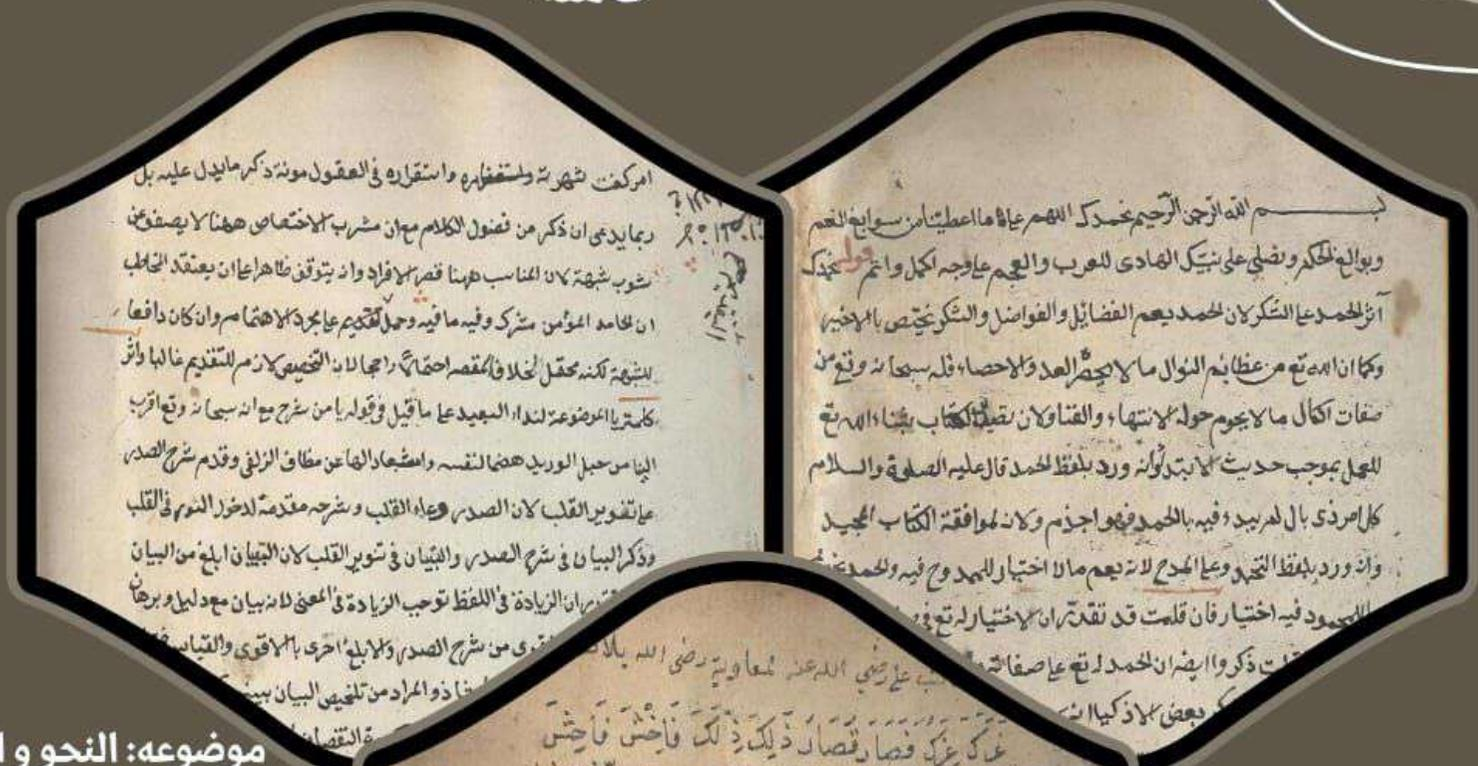 بسم الله الرحمن الرحيم نحمدك اللهم على ما اعطيتنا من سوابغ النعم
وبوالغ الحكم ونصلي على نبيك الهادى للعرب والعجم على وجه اكمل واتم قوله نحمدك
آثر الحمد على الشكر لان الحمد يعم الفضائل والفواضل والشكر يختص بالاخير
وكما ان الله تع من عظائم النوال ما لا يحضر العد والاحصاء فله سبحانه وتع من
صفات الكمال ما لا يحوم حوله الانتهاء والفنا ولان الكتاب بثناء الله تع
للعمل بموجب حديث الابتداء ورد بلفظ الحمد قال عليه الصلوة والسلام
كل امر ذى بال لم يبدء فيه بالحمد فهو اجذم ولانه لموافقة الكتاب المجيد
وان ورد بلفظ التحميد وعلى المدح لانه يعم مالا اختيار للممدوح فيه والحمد
للمحمود فيه اختيار فان قلت قد تقرر ان الاختيار له تع فى
قلت ذكروا ايضا ان الحمد له تع على صفاته
بعض الاذكياء
امر كفت شهرته واستقراره فى العقول مونة ذكر ما يدل عليه بل
ربما يدعى ان ذكر من فضول الكلام مع ان مشرب الاختصاص ههنا لا يصفو عن
شوب شبهة لان المناسب ههنا قصر الافراد وانه يتوقف ظاهرا على ان يعتقد المخاطب
ان الحامد المؤمن مشرك وفيه ما فيه وحمل تقديم على مجرد الاهتمام وان كان دافعا
للشبهة لكنه محتمل لخلاف المقصد احتمالا راجحا لان التخصيص لازم للتقديم غالبا واثر
كلمة يا الموضوعة لنداء البعيد على ما قيل فى قوله يا من شرح مع انه سبحانه وتع اقرب
الينا من حبل الوريد هضما لنفسه واستبعادا لها عن مظان الزلفى وقدم شرح الصدر
على تنوير القلب لان الصدر وعاء القلب وشرحه مقدمة لدخول النور فى القلب
وذكر البيان فى شرح الصدر والتبيان فى تنوير القلب لان التبيان ابلغ من البيان
ان الزيادة فى اللفظ توجب الزيادة فى المعنى لانه بيان مع دليل وبرهان
من شرح الصدر والابلغ احرى بالاقوى والقياس
والمراد من تلخيص البيان
النقصان
على رضي الله عنه لمعاوية رضى الله
غرك عزك فصار قصار ذلك ذلك فاخش فاحش
موضوعه: النحو و